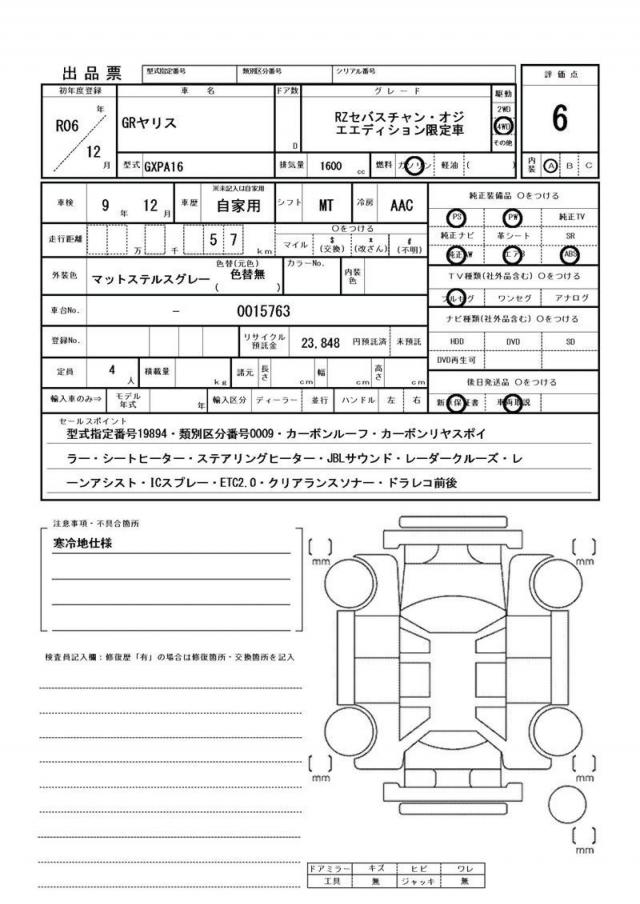 出品票
型式指定番号 類別区分番号 シリアル番号
評価点
初年度登録 車名 ドア数 グレード 駆動
R06 年 12 月
GRヤリス
D
RZセバスチャン・オジ
エエディション限定車
2WD
4WD
その他
6
型式 GXPA16 排気量 1600 cc 燃料 ガソリン 軽油 ( )
内装 A B C
車検 9 年 12 月 車歴 ※未記入は自家用 自家用 シフト MT 冷房 AAC
純正装備品 〇をつける
PS PW 純正TV
走行距離 万 千 5 7 km マイル 〇をつける $ (交換) * (改ざん) # (不明)
純正ナビ 革シート SR
純正AW エアB ABS
外装色 マットステルスグレー 色替(元色) 色替無 ( ) カラーNo. 内装色
TV種類(社外品含む) 〇をつける
フルセグ ワンセグ アナログ
車台No. − 0015763
ナビ種類(社外品含む) 〇をつける
登録No. リサイクル預託金 23,848 円預託済 未預託
HDD DVD SD
DVD再生可
定員 4 人 積載量 kg 諸元 長さ cm 幅 cm 高さ cm
後日発送品 〇をつける
輸入車のみ⇒ モデル年式 年 輸入区分 ディーラー 並行 ハンドル 左 右
新車保証書 車両取説
セールスポイント
型式指定番号19894・類別区分番号0009・カーボンルーフ・カーボンリヤスポイ
ラー・シートヒーター・ステアリングヒーター・JBLサウンド・レーダークルーズ・レ
ーンアシスト・ICスプレー・ETC2.0・クリアランスソナー・ドラレコ前後
注意事項・不具合箇所
寒冷地仕様
検査員記入欄：修復歴「有」の場合は修復箇所・交換箇所を記入
[ ] mm
[ ] mm
[ ] mm
[ ] mm
[ ] mm
ドアミラー キズ ヒビ ワレ
工具 無 ジャッキ 無